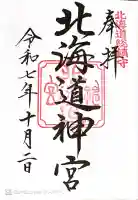 奉拝
北海道総鎮守
北海道神宮
令和七年十月二日